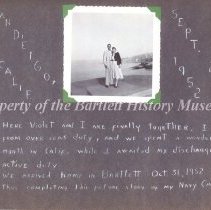 AN DEIGO,
CALIF
SEPT.
1952
perty of the Bartlett History Muse
Here Violet and I are finally together. I
from over seas duty, and we spent a
month in Calif. while I awaited my discharge
active duty.
We arrived home in Bartlett Oct 31, 1952
thus completing the picture story of my Navy